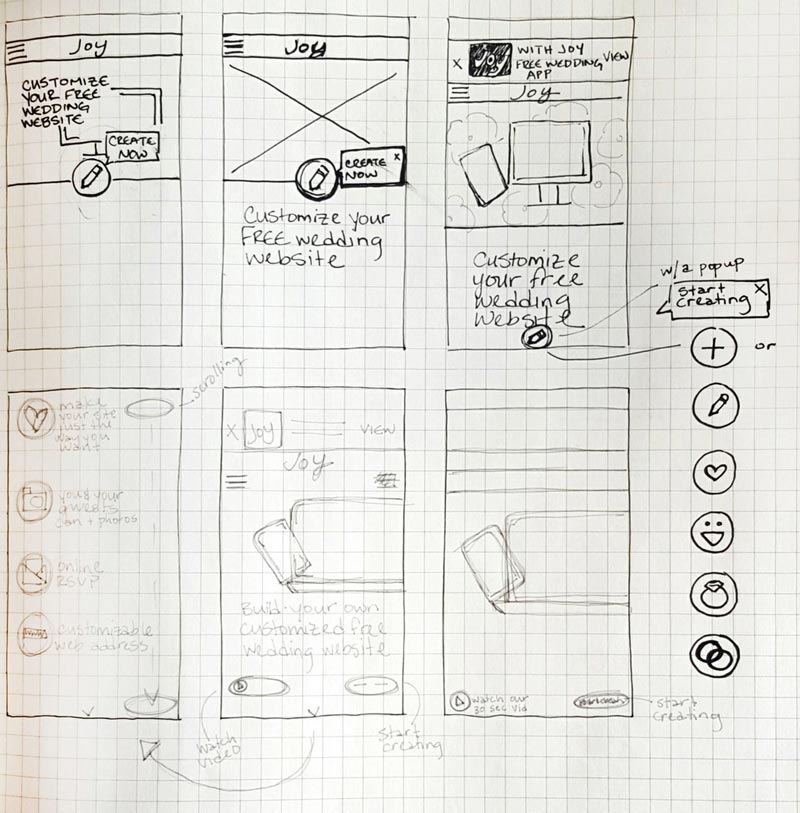 Joy
CUSTOMIZE
YOUR FREE
WEDDING
WEBSITE
CREATE
NOW
Joy
CREATE X
NOW
Customize your
FREE wedding
website
X
WITH JOY
FREE WEDDING
APP
VIEW
Joy
Customize
your free
wedding
website
w/a popup
start X
creating
or
make
your site
just the
way you
want
scrolling
your
guests
can + photos
online
RSVP
www
customizable
web address
X JOY VIEW
Joy
Build your own
customized free
wedding website
watch
video
start
creating
watch our
30 sec vid
start
creating